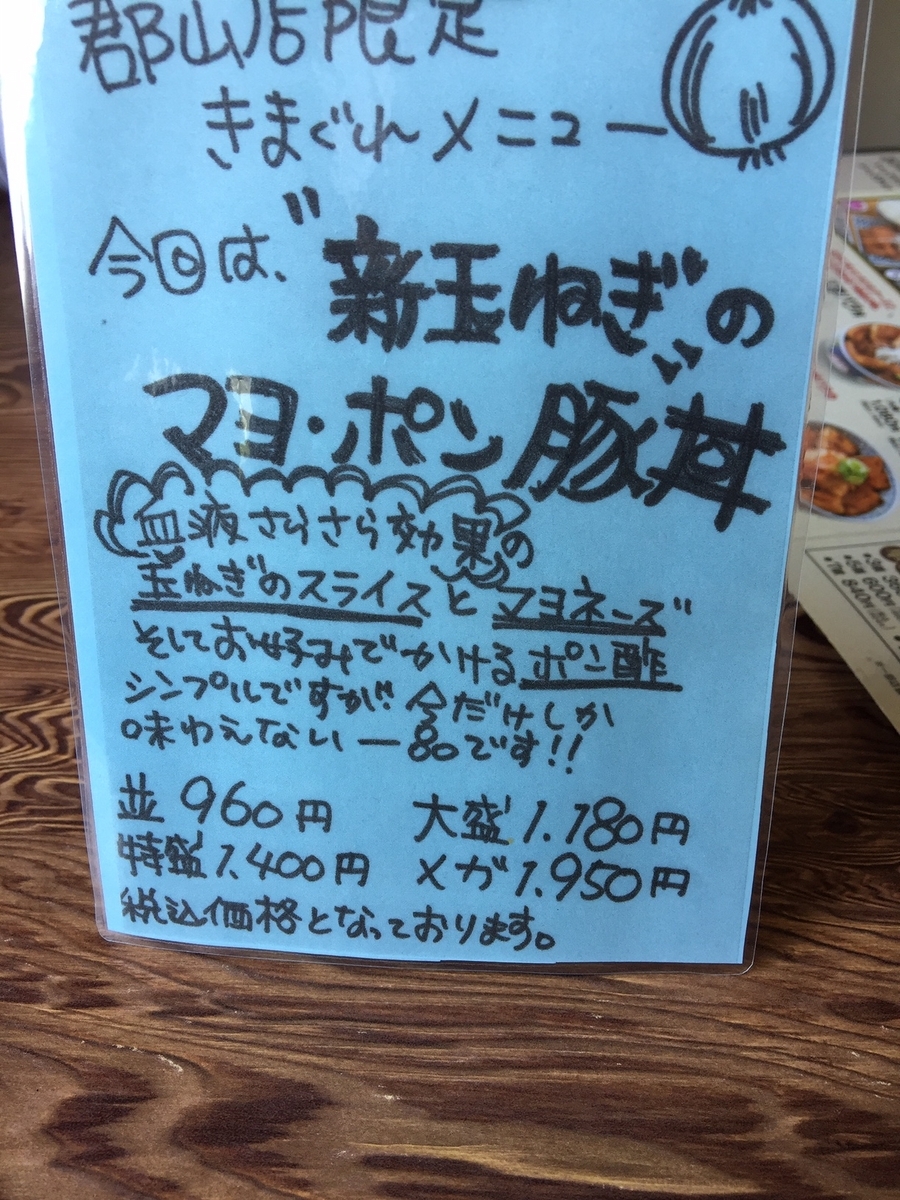 郡山店限定
きまぐれメニュー
今回は、"新玉ねぎ"の
マヨ・ポン豚丼
血液さらさら効果の
玉ねぎのスライスとマヨネーズ
そしてお好みでかけるポン酢
シンプルですが今だけしか
味わえない一品です!!
並 960円 大盛 1.180円
特盛 1.400円 メガ 1.950円
税込価格となっております。